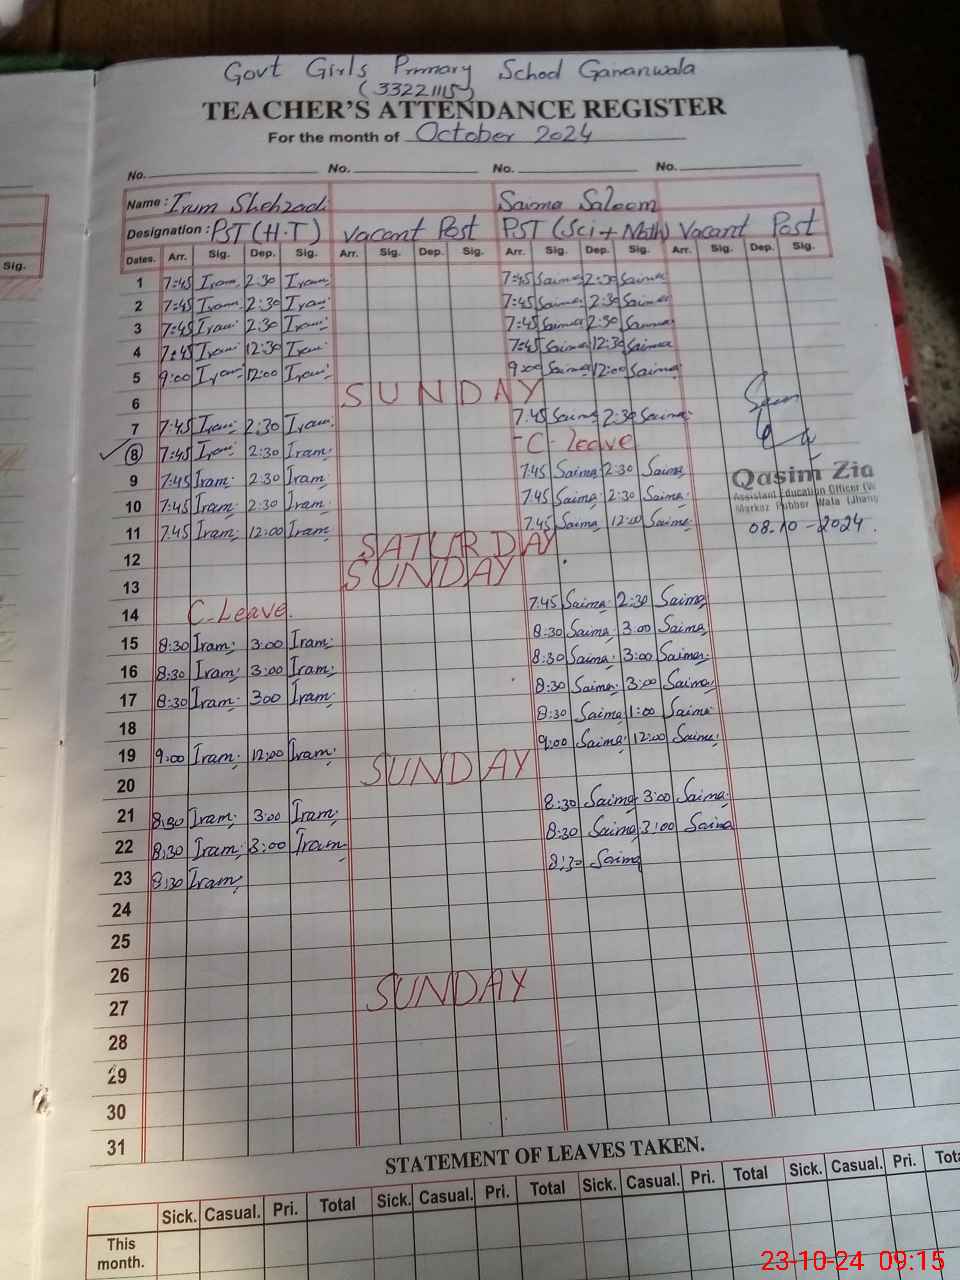 Govt Girls Primary School Gananwala
(33221115)
TEACHER'S ATTENDANCE REGISTER
For the month of October 2024
No. No. No. No.
Name: Irum Shehzadi Saima Saleem
Designation: PST (H.T) Vacant Post PST (Sci + Math) Vacant Post
Sig.
Dates. Arr. Sig. Dep. Sig. Arr. Sig. Dep. Sig. Arr. Sig. Dep. Sig. Arr. Sig. Dep. Sig.
1 7:45 Iram 2:30 Iram 7:45 Saima 2:30 Saima
2 7:45 Iram 2:30 Iram 7:45 Saima 2:30 Saima
3 7:45 Iram 2:30 Iram 7:45 Saima 2:30 Saima
4 7:45 Iram 12:30 Iram 7:45 Saima 12:30 Saima
5 9:00 Iram 12:00 Iram 9:00 Saima 12:00 Saima
6 SUNDAY
7 7:45 Iram 2:30 Iram 7:45 Saima 2:30 Saima
8 7:45 Iram 2:30 Iram C-leave
9 7:45 Iram 2:30 Iram 7:45 Saima 2:30 Saima
10 7:45 Iram 2:30 Iram 7:45 Saima 2:30 Saima
11 7:45 Iram 12:00 Iram 7:45 Saima 12:00 Saima
Qasim Zia
Assistant Education Officer
Markaz Pubber Wala (Jhang
08-10-2024.
12 SATURDAY
13 SUNDAY
14 C.Leave 7:45 Saima 2:30 Saima
15 8:30 Iram 3:00 Iram 8:30 Saima 3:00 Saima
16 8:30 Iram 3:00 Iram 8:30 Saima 3:00 Saima
17 8:30 Iram 300 Iram 8:30 Saima 3:00 Saima
18 8:30 Saima 1:00 Saima
19 9:00 Iram 12:00 Iram 9:00 Saima 12:00 Saima
20 SUNDAY
21 8:30 Iram 3:00 Iram 8:30 Saima 3:00 Saima
22 8:30 Iram 3:00 Iram 8:30 Saima 3:00 Saima
23 8:30 Iram 8:30 Saima
24
25
26
27 SUNDAY
28
29
30
31
STATEMENT OF LEAVES TAKEN.
Sick. Casual. Pri. Total Sick. Casual. Pri. Total Sick. Casual. Pri. Total Sick. Casual. Pri. Tota
This month.
23-10-24 09:15